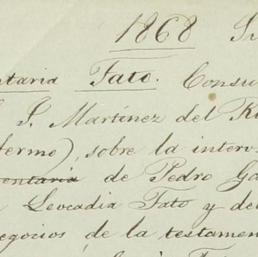 1868
ntaria Fato. Consu
S. Martinez del R
fermo), sobre la interv
mentaria de Pedro Ga
Leocadia Fato y del
egocios de la testamen